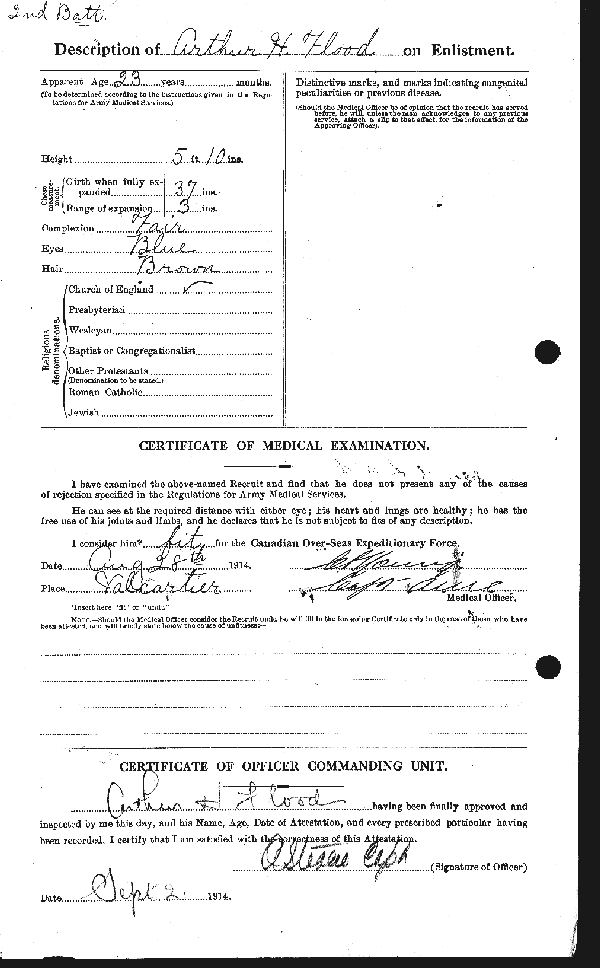 2nd Batt.
Description of Arthur H Flood on Enlistment.
Apparent Age 23 years months.
(To be determined according to the instructions given in the Regulations for Army Medical Services.)
Height 5 ft. 10 ins.
Chest measurement.
Girth when fully expanded 37 ins.
Range of expansion 3 ins.
Complexion Fair
Eyes Blue
Hair Brown
Religious denominations.
Church of England ✓
Presbyterian
Wesleyan
Baptist or Congregationalist
Other Protestants
(Denomination to be stated.)
Roman Catholic
Jewish
Distinctive marks, and marks indicating congenital
peculiarities or previous disease.
(Should the Medical Officer be of opinion that the recruit has served
before, he will, unless the man acknowledges to any previous
service, attach a slip to that effect, for the information of the
Approving Officer).
CERTIFICATE OF MEDICAL EXAMINATION.
I have examined the above-named Recruit and find that he does not present any of the causes
of rejection specified in the Regulations for Army Medical Services.
He can see at the required distance with either eye; his heart and lungs are healthy; he has the
free use of his joints and limbs, and he declares that he is not subject to fits of any description.
I consider him* fit for the Canadian Over-Seas Expeditionary Force.
Date Aug 28th 1914.
Place Valcartier
Medical Officer.
*Insert here "fit" or "unfit."
NOTE.—Should the Medical Officer consider the Recruit unfit, he will fill in the foregoing Certificate only in the case of those who have
been attested, and will briefly state below the cause of unfitness:—
CERTIFICATE OF OFFICER COMMANDING UNIT.
Arthur H Flood having been finally approved and
inspected by me this day, and his Name, Age, Date of Attestation, and every prescribed particular having
been recorded, I certify that I am satisfied with the correctness of this Attestation.
Capt (Signature of Officer)
Date Sept 2 1914.